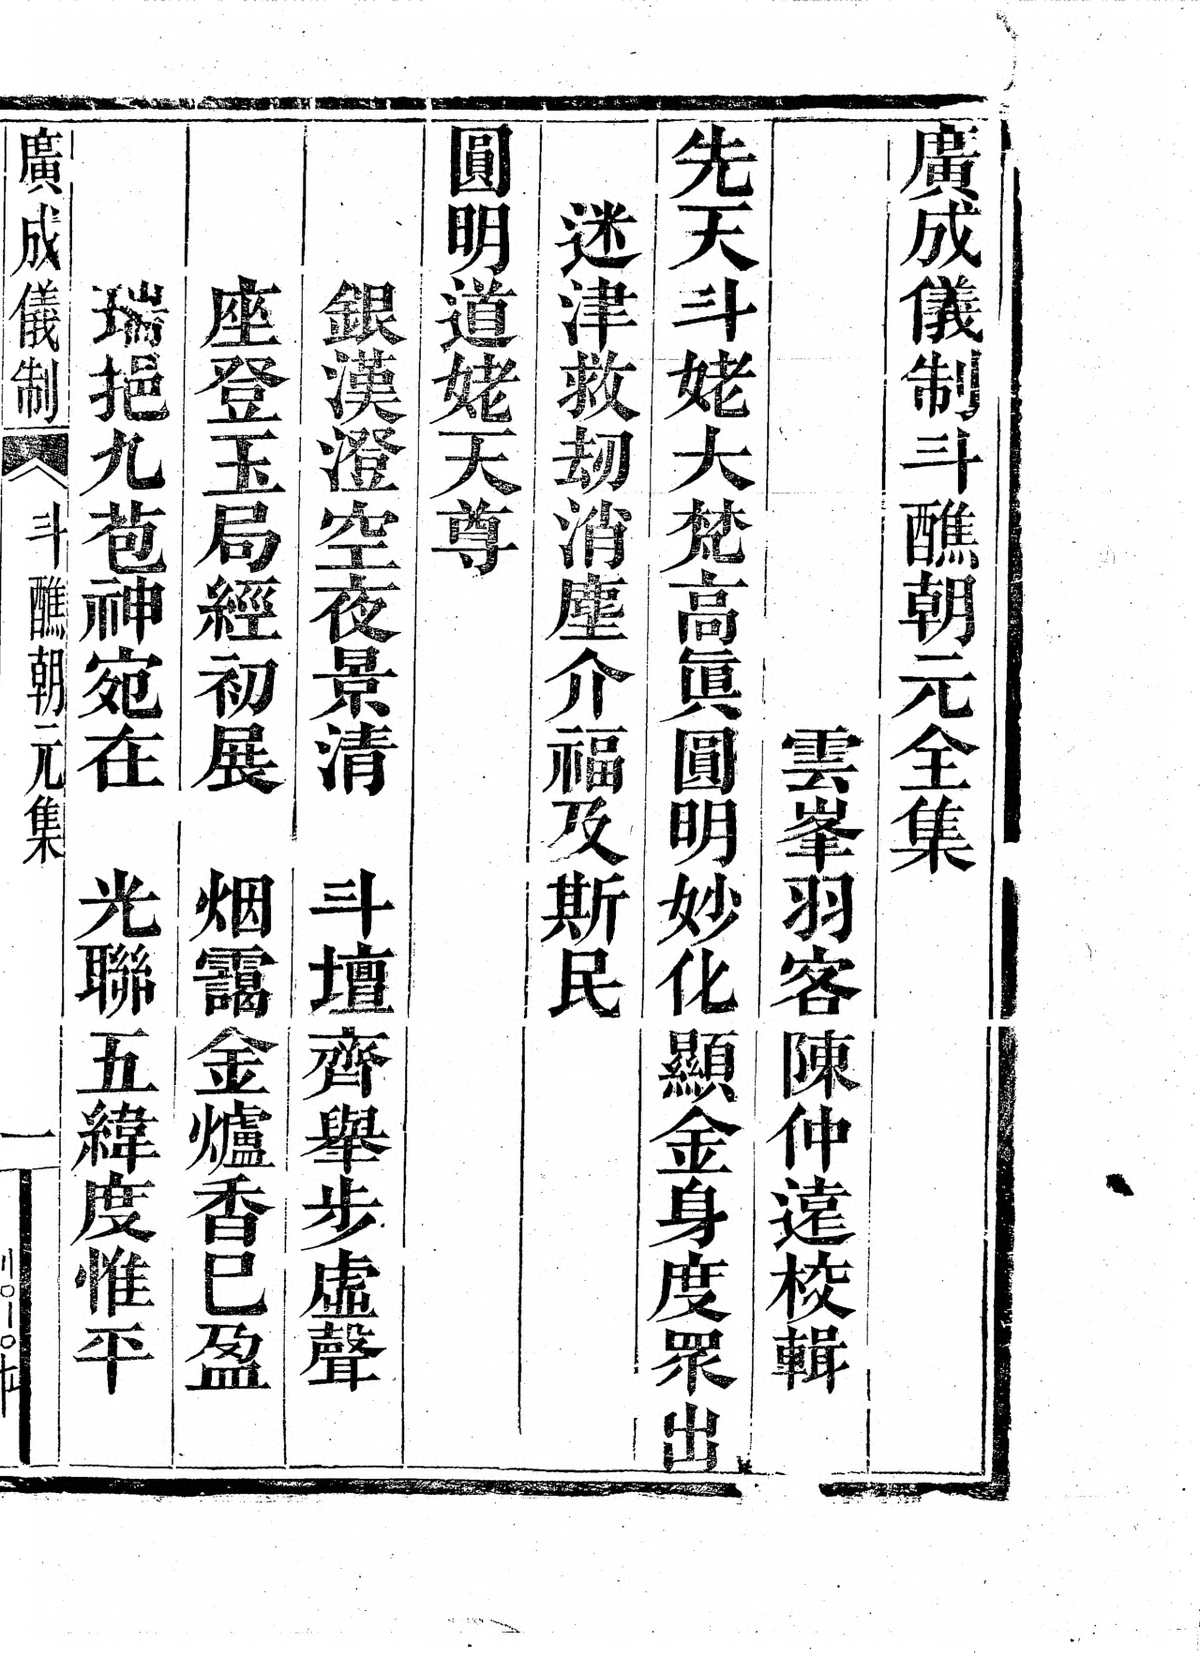 廣成儀制斗醮朝元全集
雲峯羽客陳仲遠校輯
先天斗姥大梵高眞圓明妙化顯金身度眾出
迷津救劫消塵介福及斯民
圓明道姥天尊
銀漢澄空夜景清　斗壇齊舉步虛聲
座登玉局經初展　烟靄金爐香已盈
瑞挹九苞神宛在　光聯五緯度惟平
廣成儀制　斗醮朝元集　一